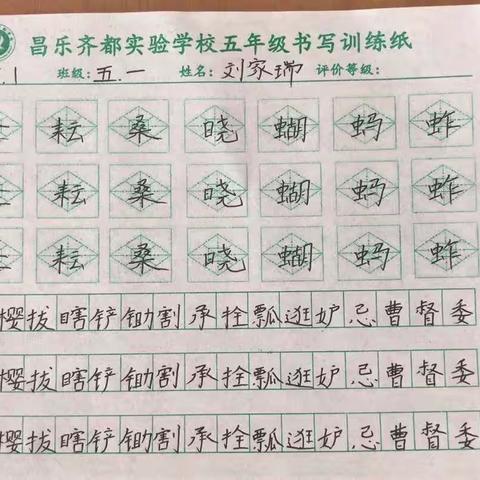 昌乐齐都实验学校五年级书写训练纸
.1 班级：五.一 姓名：刘家瑞 评价等级：
耘 桑 晓 蝴 蚂 蚱
耘 桑 晓 蝴 蚂 蚱
耘 桑 晓 蝴 蚂 蚱
樱拔瞎铲锄割承拴瓢逛妒忌曹督委
樱拔瞎铲锄割承拴瓢逛妒忌曹督委
樱拔瞎铲锄割承拴瓢逛妒忌曹督委